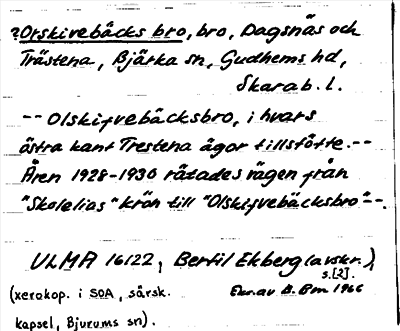 ?Olskivebäcks bro, bro, Dagsnäs och
Trästena, Bjärka sn, Gudhems hd,
Skarab. l.
-- Olskifvebäcksbro, i hvars
östra kant Trestena ägor tillstötte.--
Åren 1928-1930 rätades vägen från
"Skolelias" krön till "Olskifvebäcksbro"--.
ULMA 16122, Bertil Ekberg (avskr.),
s.[2].
(xerokop. i SOA, särsk.
Exc. av B. Bm 1966
kapsel, Bjurums sn).